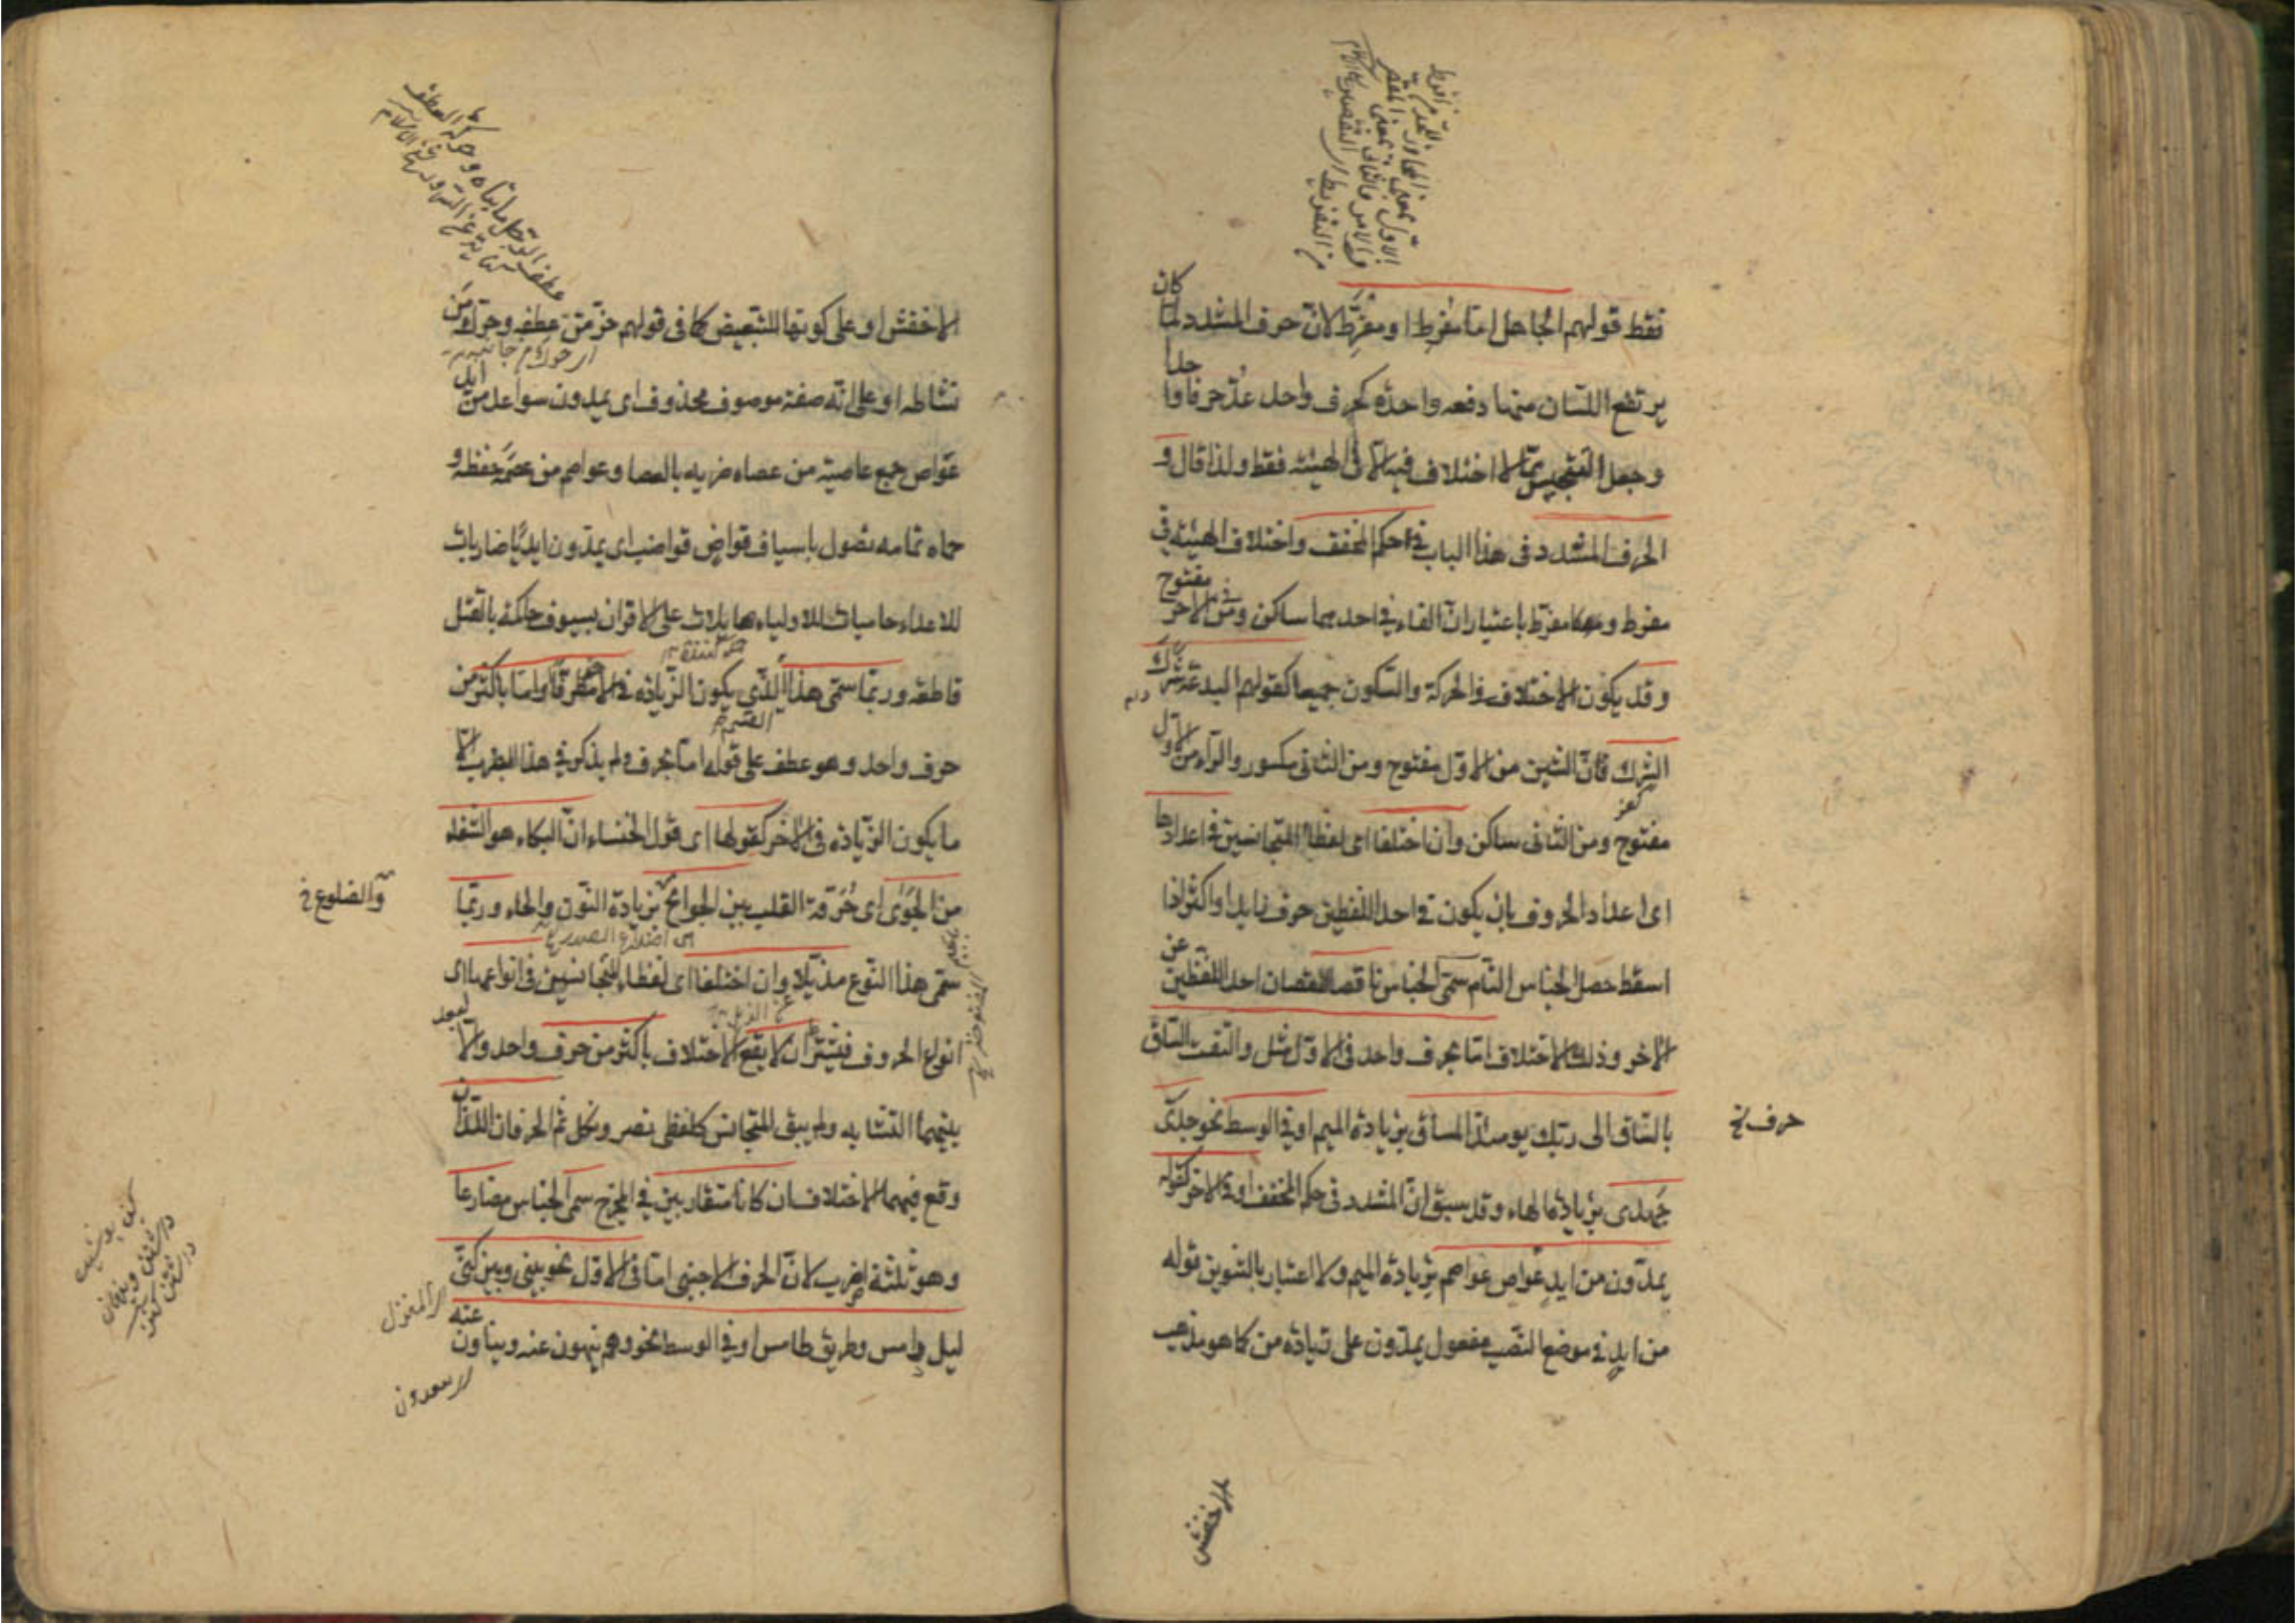 فقط قولهم الجاهل اما مفرط او مفرّط لان حرف المشدد لما كان
يرتفع اللسان عنهما دفعة واحدة كحرف واحد عدّ حرفا واحدا
وجعل التجنيس مما لا اختلاف فيه الا في الهيئة فقط ولذا قال و
الحرف المشدد في هذا الباب في حكم المخفف واختلاف الهيئة في
مفرط ومفرّط باعتبار ان الفاء في احدهما ساكن ومن الآخر مفتوح
وقد يكون الاختلاف في الحركة والسكون جميعا كقولهم البدعة شرك
الشرك فان الشين من الاول مفتوح ومن الثاني مكسور والراء من الاول
مفتوح ومن الثاني ساكن وان اختلفا اى لفظا المتجانسين في اعدادها
اى اعداد الحروف بان يكون في احد اللفظين حرف زايد او اكثر اذا
اسقط حصل الجناس التام سمى الجناس ناقصا لنقصان احد اللفظين عن
الآخر وذلك الاختلاف اما بحرف واحد في الاول مثل والتفت الساق
بالساق الى ربك يومئذ المساق بزيادة الميم او في الوسط نحو جدّى
حرف خ
جهدى بزيادة الهاء وقد سبق ان المشدد في حكم المخفف او في الآخر كقوله
يمدّون من ايدٍ عواصٍ عواصم بزيادة الميم ولا اعتبار بالتنوين قوله
من ايدٍ في موضع النصب مفعول يمدّون على زيادة من كما هو مذهب
الاخفش او على كونها للتبعيض كما في قولهم هزّ من عطفه وحرك من
نشاطه او على انه صفة موصوف محذوف اى يمدون سواعد من ايد
عواص جمع عاصية من عصاه ضربه بالعصا وعواصم من عصمه حفظه و
حماه تمامه تصول باسياف قواض قواضب اى يمدّون ايديا ضاربات
للاعداء حاميات للاولياء صايلات على الاقران بسيوف حاكمة بالقتل
قاطعة وربما سمى هذا الذى يكون الزيادة في الآخر مطرفا واما باكثر من
حرف واحد وهو عطف على قوله اما بحرف ولم يذكر في هذا الضرب الا
ما يكون الزيادة في الآخر كقولها اى قول الخنساء ان البكاء هو الشفاء
من الجوى اى حرقة القلب بين الجوانح بزيادة النون والحاء وربما
والضلوع خ
سمى هذا النوع مذيلا وان اختلفا اى لفظا المتجانسين في انواعها اى
انواع الحروف فيشترط ان لا يقع الاختلاف باكثر من حرف واحد والا لبعد
بينهما التشابه ولم يبق للتجانس كلفظى نصر ونكل ثم الحرفان اللذان
وقع فيهما الاختلاف ان كانا متقاربين في المخرج سمى الجناس مضارعا
وهو ثلثة اضرب لان الحرف الاجنبى اما في الاول نحو بينى وبين كنّى
ليل دامس وطريق طامس او في الوسط نحو وهم ينهون عنه وينأون عنه